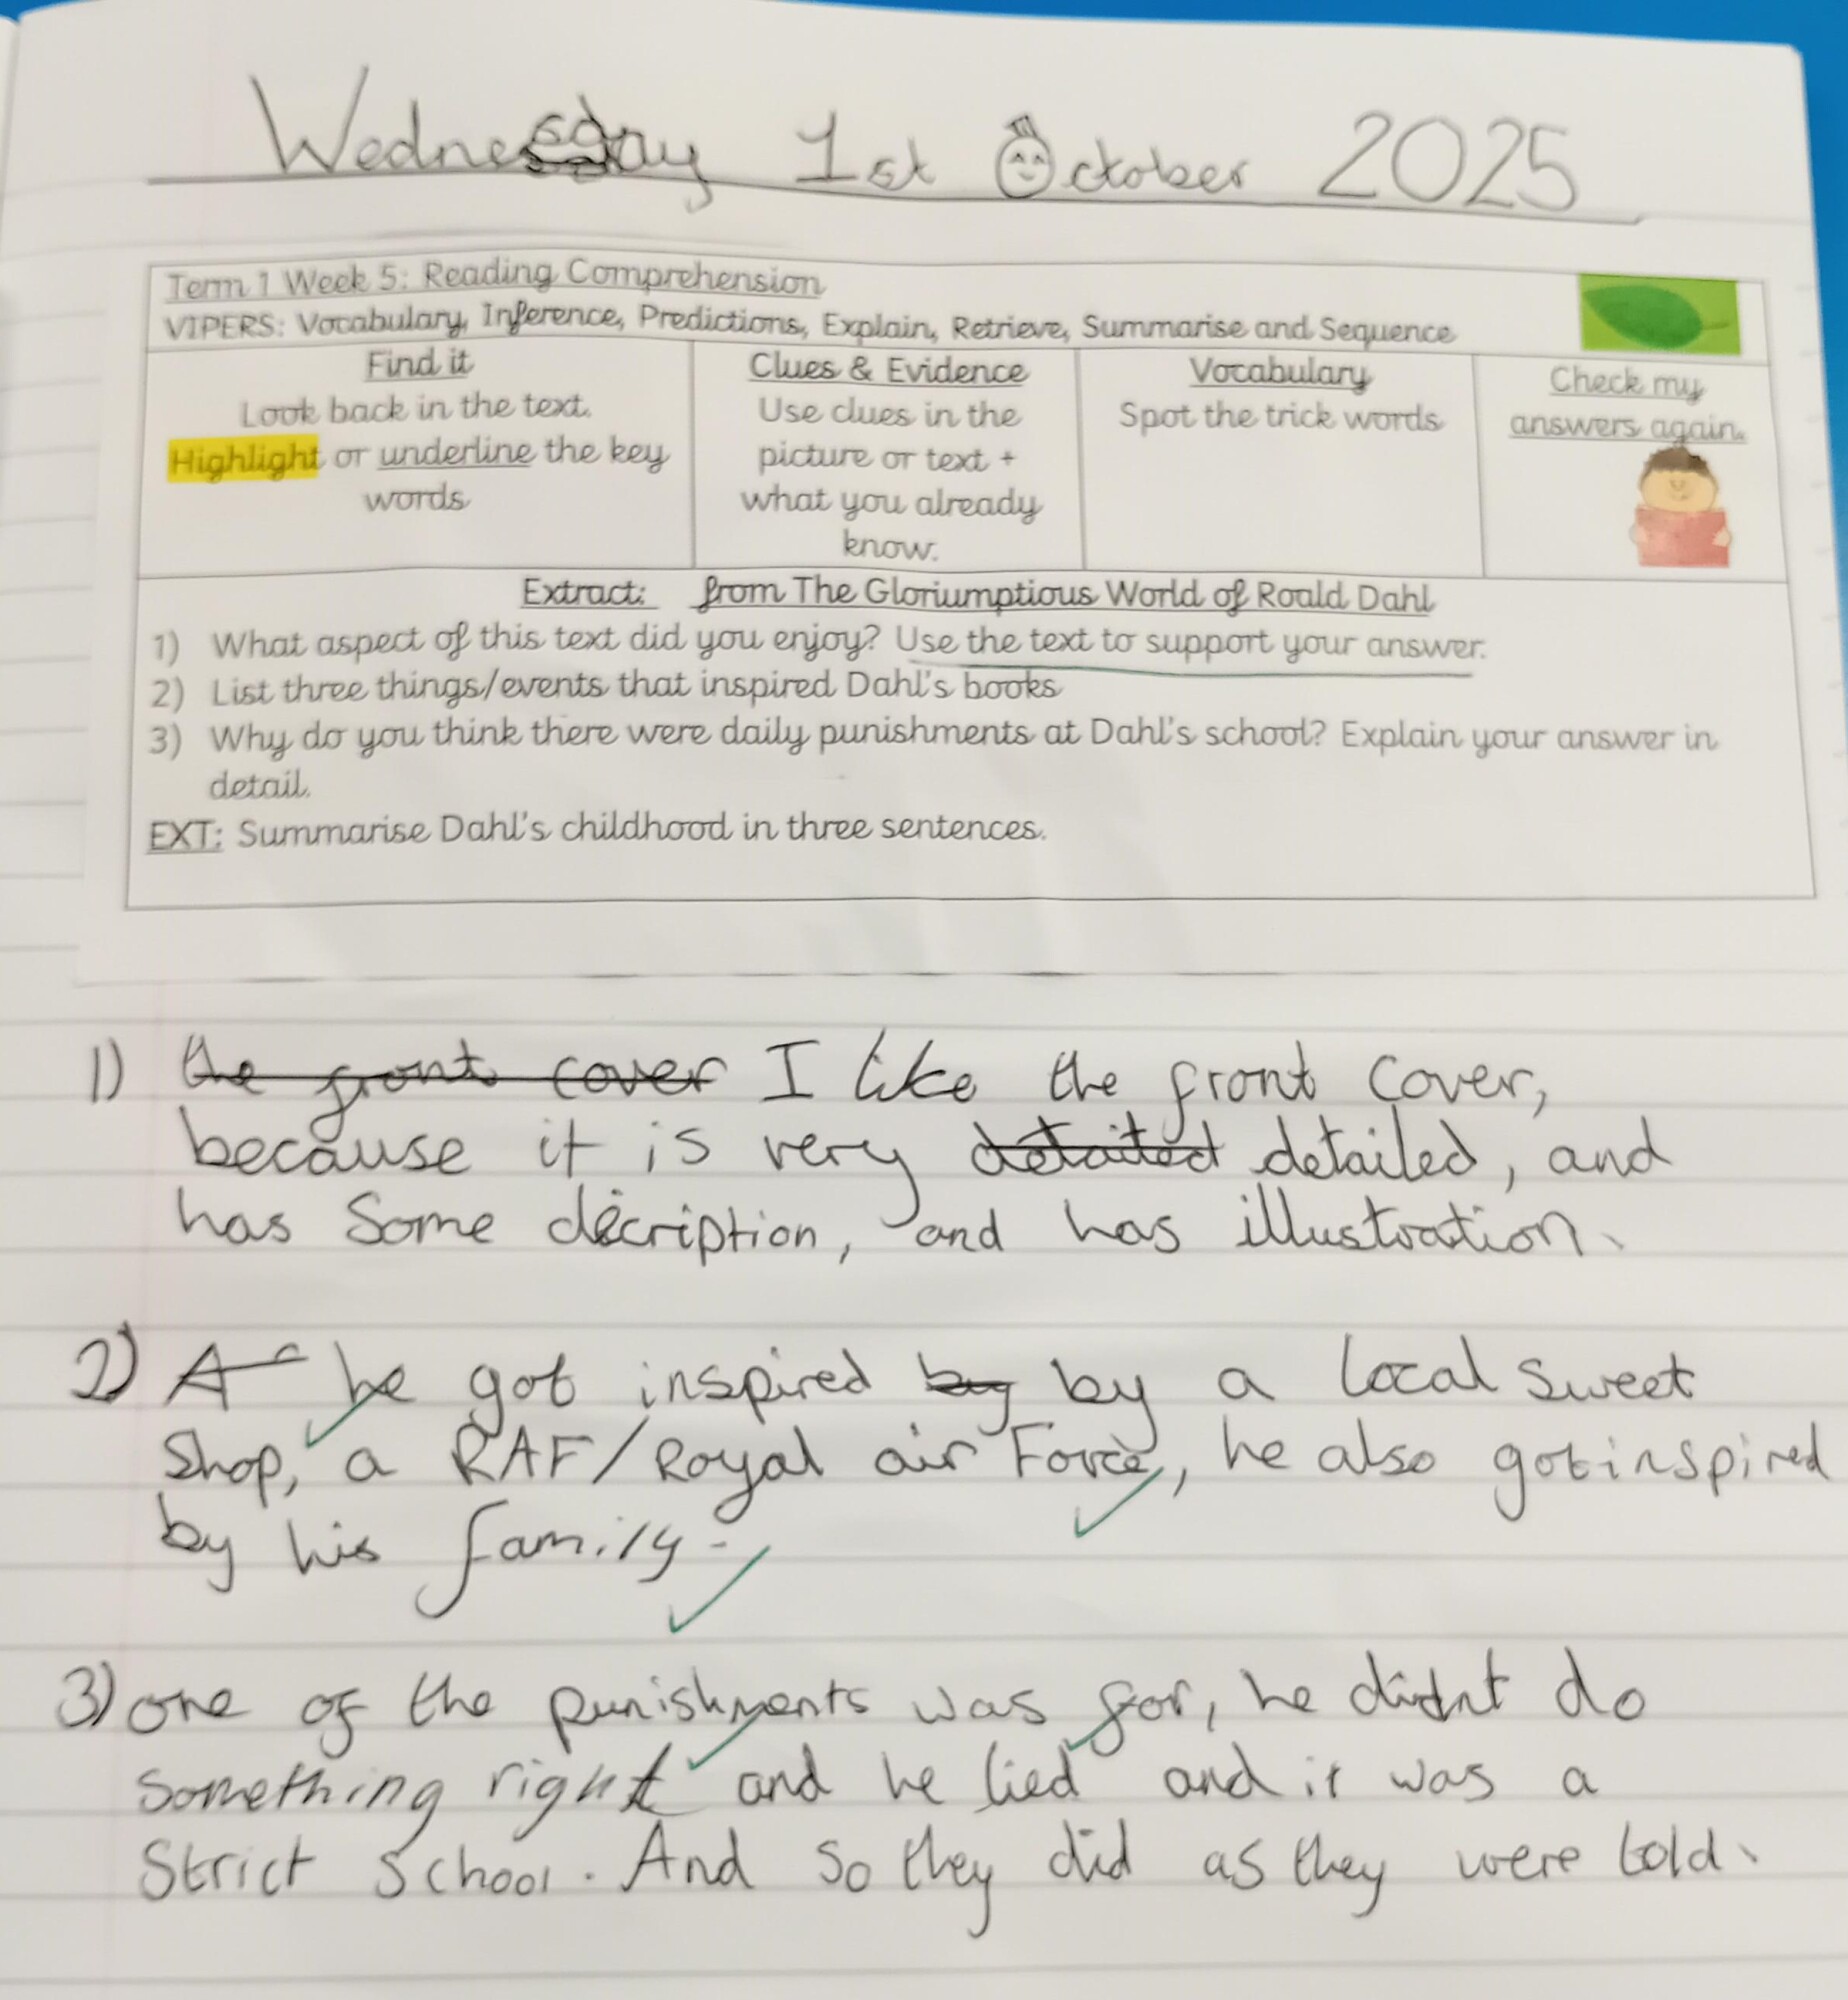 Wednesday 1st October 2025
Term 1 Week 5: Reading Comprehension
VIPERS: Vocabulary, Inference, Predictions, Explain, Retrieve, Summarise and Sequence
Find it
Look back in the text.
Highlight or underline the key
words
Clues & Evidence
Use clues in the
picture or text +
what you already
know.
Vocabulary
Spot the trick words
Check my
answers again.
Extract: from The Gloriumptious World of Roald Dahl
1) What aspect of this text did you enjoy? Use the text to support your answer.
2) List three things/events that inspired Dahl's books
3) Why do you think there were daily punishments at Dahl's school? Explain your answer in
detail.
EXT: Summarise Dahl's childhood in three sentences.
1) the front cover I like the front cover,
because it is very detailed detailed, and
has some decription, and has illustration.
2) A he got inspired by by a local sweet
shop, a RAF/Royal air Force, he also got inspired
by his family.
3) one of the punishments was for, he didnt do
something right and he lied and it was a
strict school. And so they did as they were told.